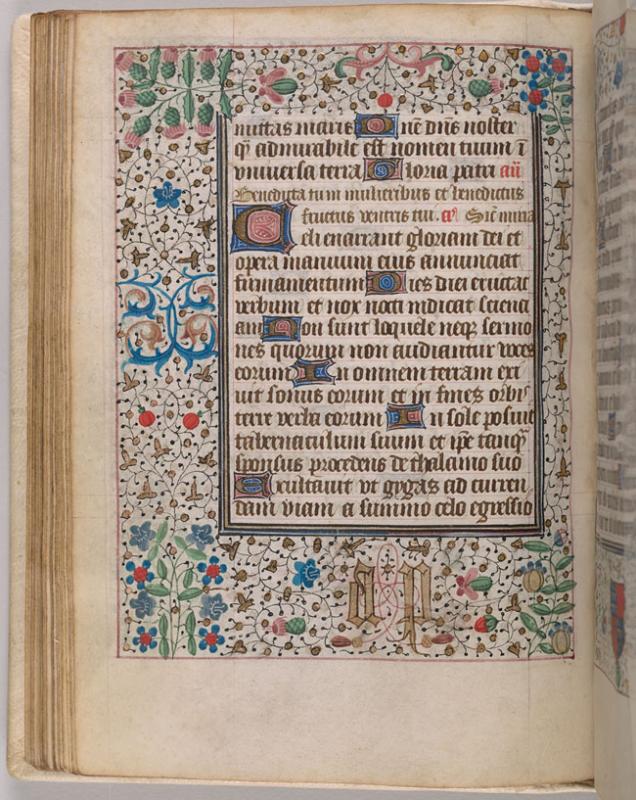 mittas maris D nē dns noster
q̄ admirabile est nomen tuum ī
vniuersa terra G loria patri añ
Benedicta tu in mulieribus et benedictus
fructus ventris tui. a͞ Sic̄ mirra
C eli enarrant gloriam dei et
opera manuum eius annunciat
firmamentum D ies diei eructat
verbum et nox nocti indicat scienci
am N on sunt loquele neqꝫ sermo
nes quorum non audiantur voces
eorum I n omnem terram exi
uit sonus eorum et in fines orbis
terre verba eorum I n sole posuit
tabernaculum suum et ip̄e tanqᷓ
sponsus procedens de thalamo suo
E xultauit vt gygas ad curren
dam viam a summo celo egressio